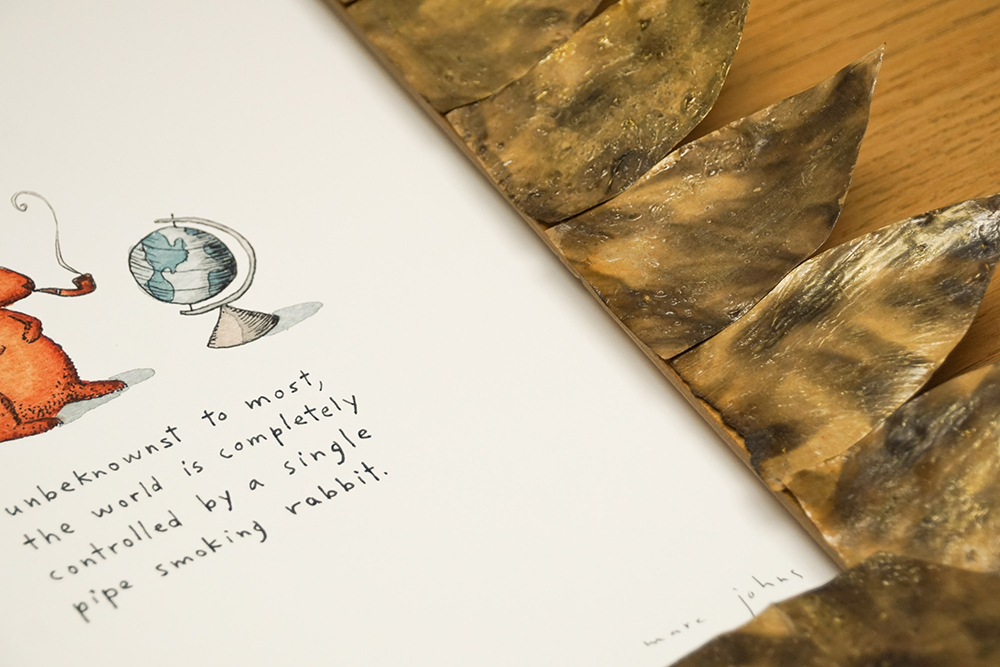 unbeknownst to most,
the world is completely
controlled by a single
pipe smoking rabbit.
marc johns